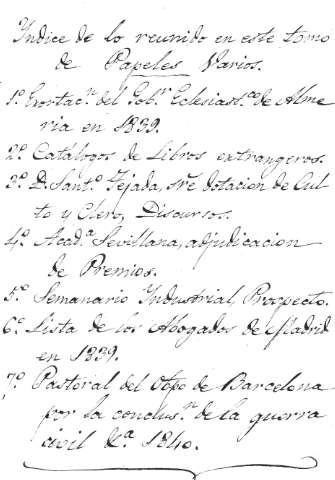 Yndice de lo reunido en este tomo
de Papeles Varios.
1º Exortac.n del Gob.r Eclesiast.co de Alme
ria en 1839.
2º Catálogos de Libros extrangeros.
3º D. Sant.º Tejada, s.re dotacion de Cul
to y Clero, Discursos.
4º Acad.a Sevillana, adjudicacion
de Premios.
5º Semanario Industrial, Prospecto.
6º Lista de los Abogados de Madrid
en 1839.
7º Pastoral del Obpo de Barcelona
por la conclus.n de la guerra
civil &.a 1840.